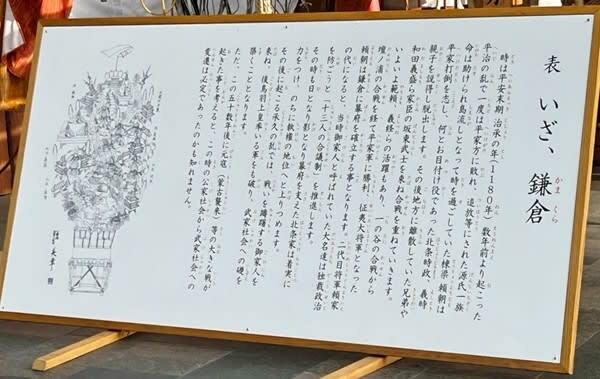 表 いざ、鎌倉
時は平安末期治承の年(1180年)数年前より起こった
平治の乱で一度は平家方に敗れ、追放等にされた源氏一族
命は助けられ島流しとなって時を過ごしていた棟梁 頼朝は
平家打倒を志し、何とお目付け役であった北条時政、義時
親子を説得し脱出します。その後地方に離散していた兄弟や
和田義盛ら家臣の坂東武士を束ね合戦を重ねていきます。
いよいよ範頼、義経らの活躍もあり、一の谷の合戦から
壇ノ浦の合戦を経て平家軍に勝利、征夷大将軍となった
頼朝は鎌倉に幕府を確立する事となります。二代目将軍頼家
の代になると、当時御家人と呼ばれていた大名達は独裁政治
を防ごうと「十三人の合議制」を推進します。
その時も日となり影となり幕府を支えた北条家は着実に
力をつけ、のちに執権の地位へと上りつめます。
その後に起こる承久の乱では、戦いを躊躇する御家人を
束ね、後鳥羽上皇率いる軍をも破り、武家社会への礎を
築くこととなります。
ただ、この五十数年後に元寇(蒙古襲来)等の大きな戦が
起きた事を考えると、この時の公家社会から武家社会への
変遷は必定であったのかも知れません。